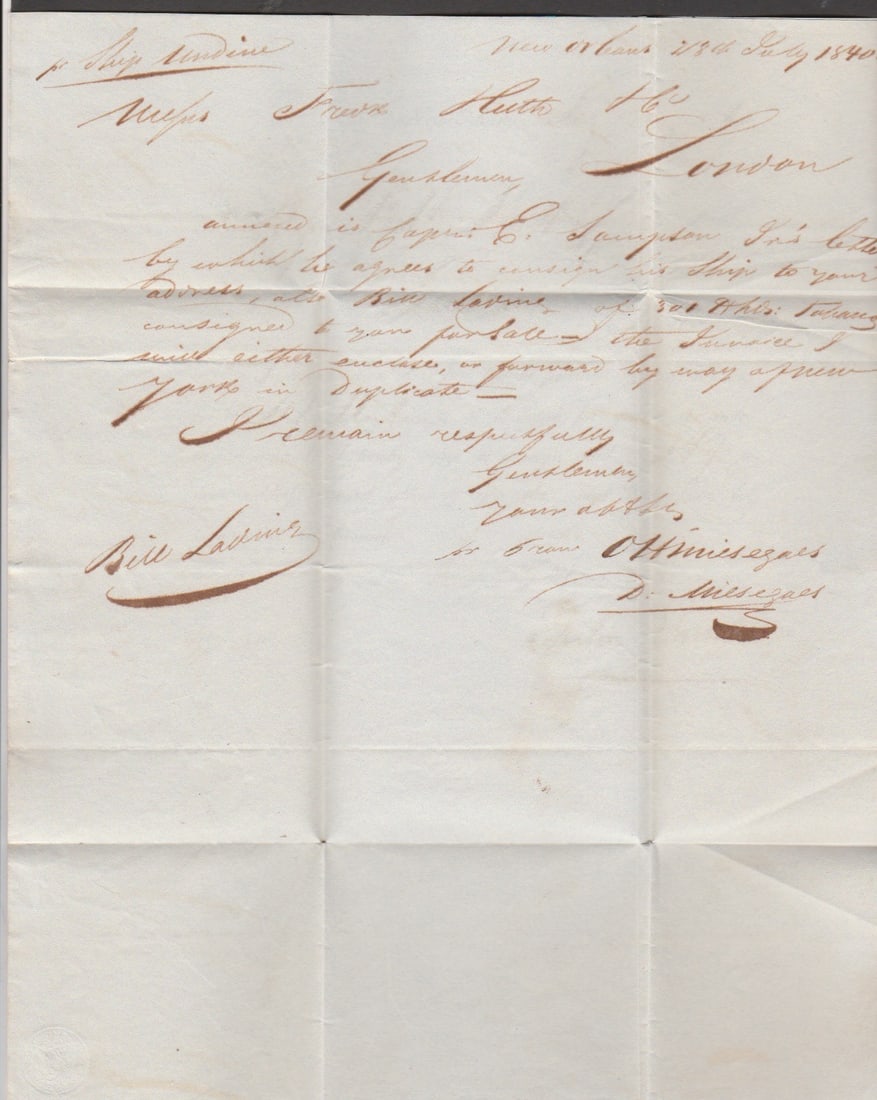 pr Ship Undine New Orleans 28th July 1840
Messrs Fredk Huth & Co
London
Gentlemen,
annexed is Captn E. Sampson Jrs letter
by which he agrees to consign his Ship to your
address, also Bill Lading of 301 Hhds: Tobacco
consigned to you for Sale — the Invoice I
will either enclose, or forward by way of New
York in Duplicate —
I remain respectfully
Gentlemen,
Your obt
Bill Lading
pr O H Miesegaes
D: Miesegaes